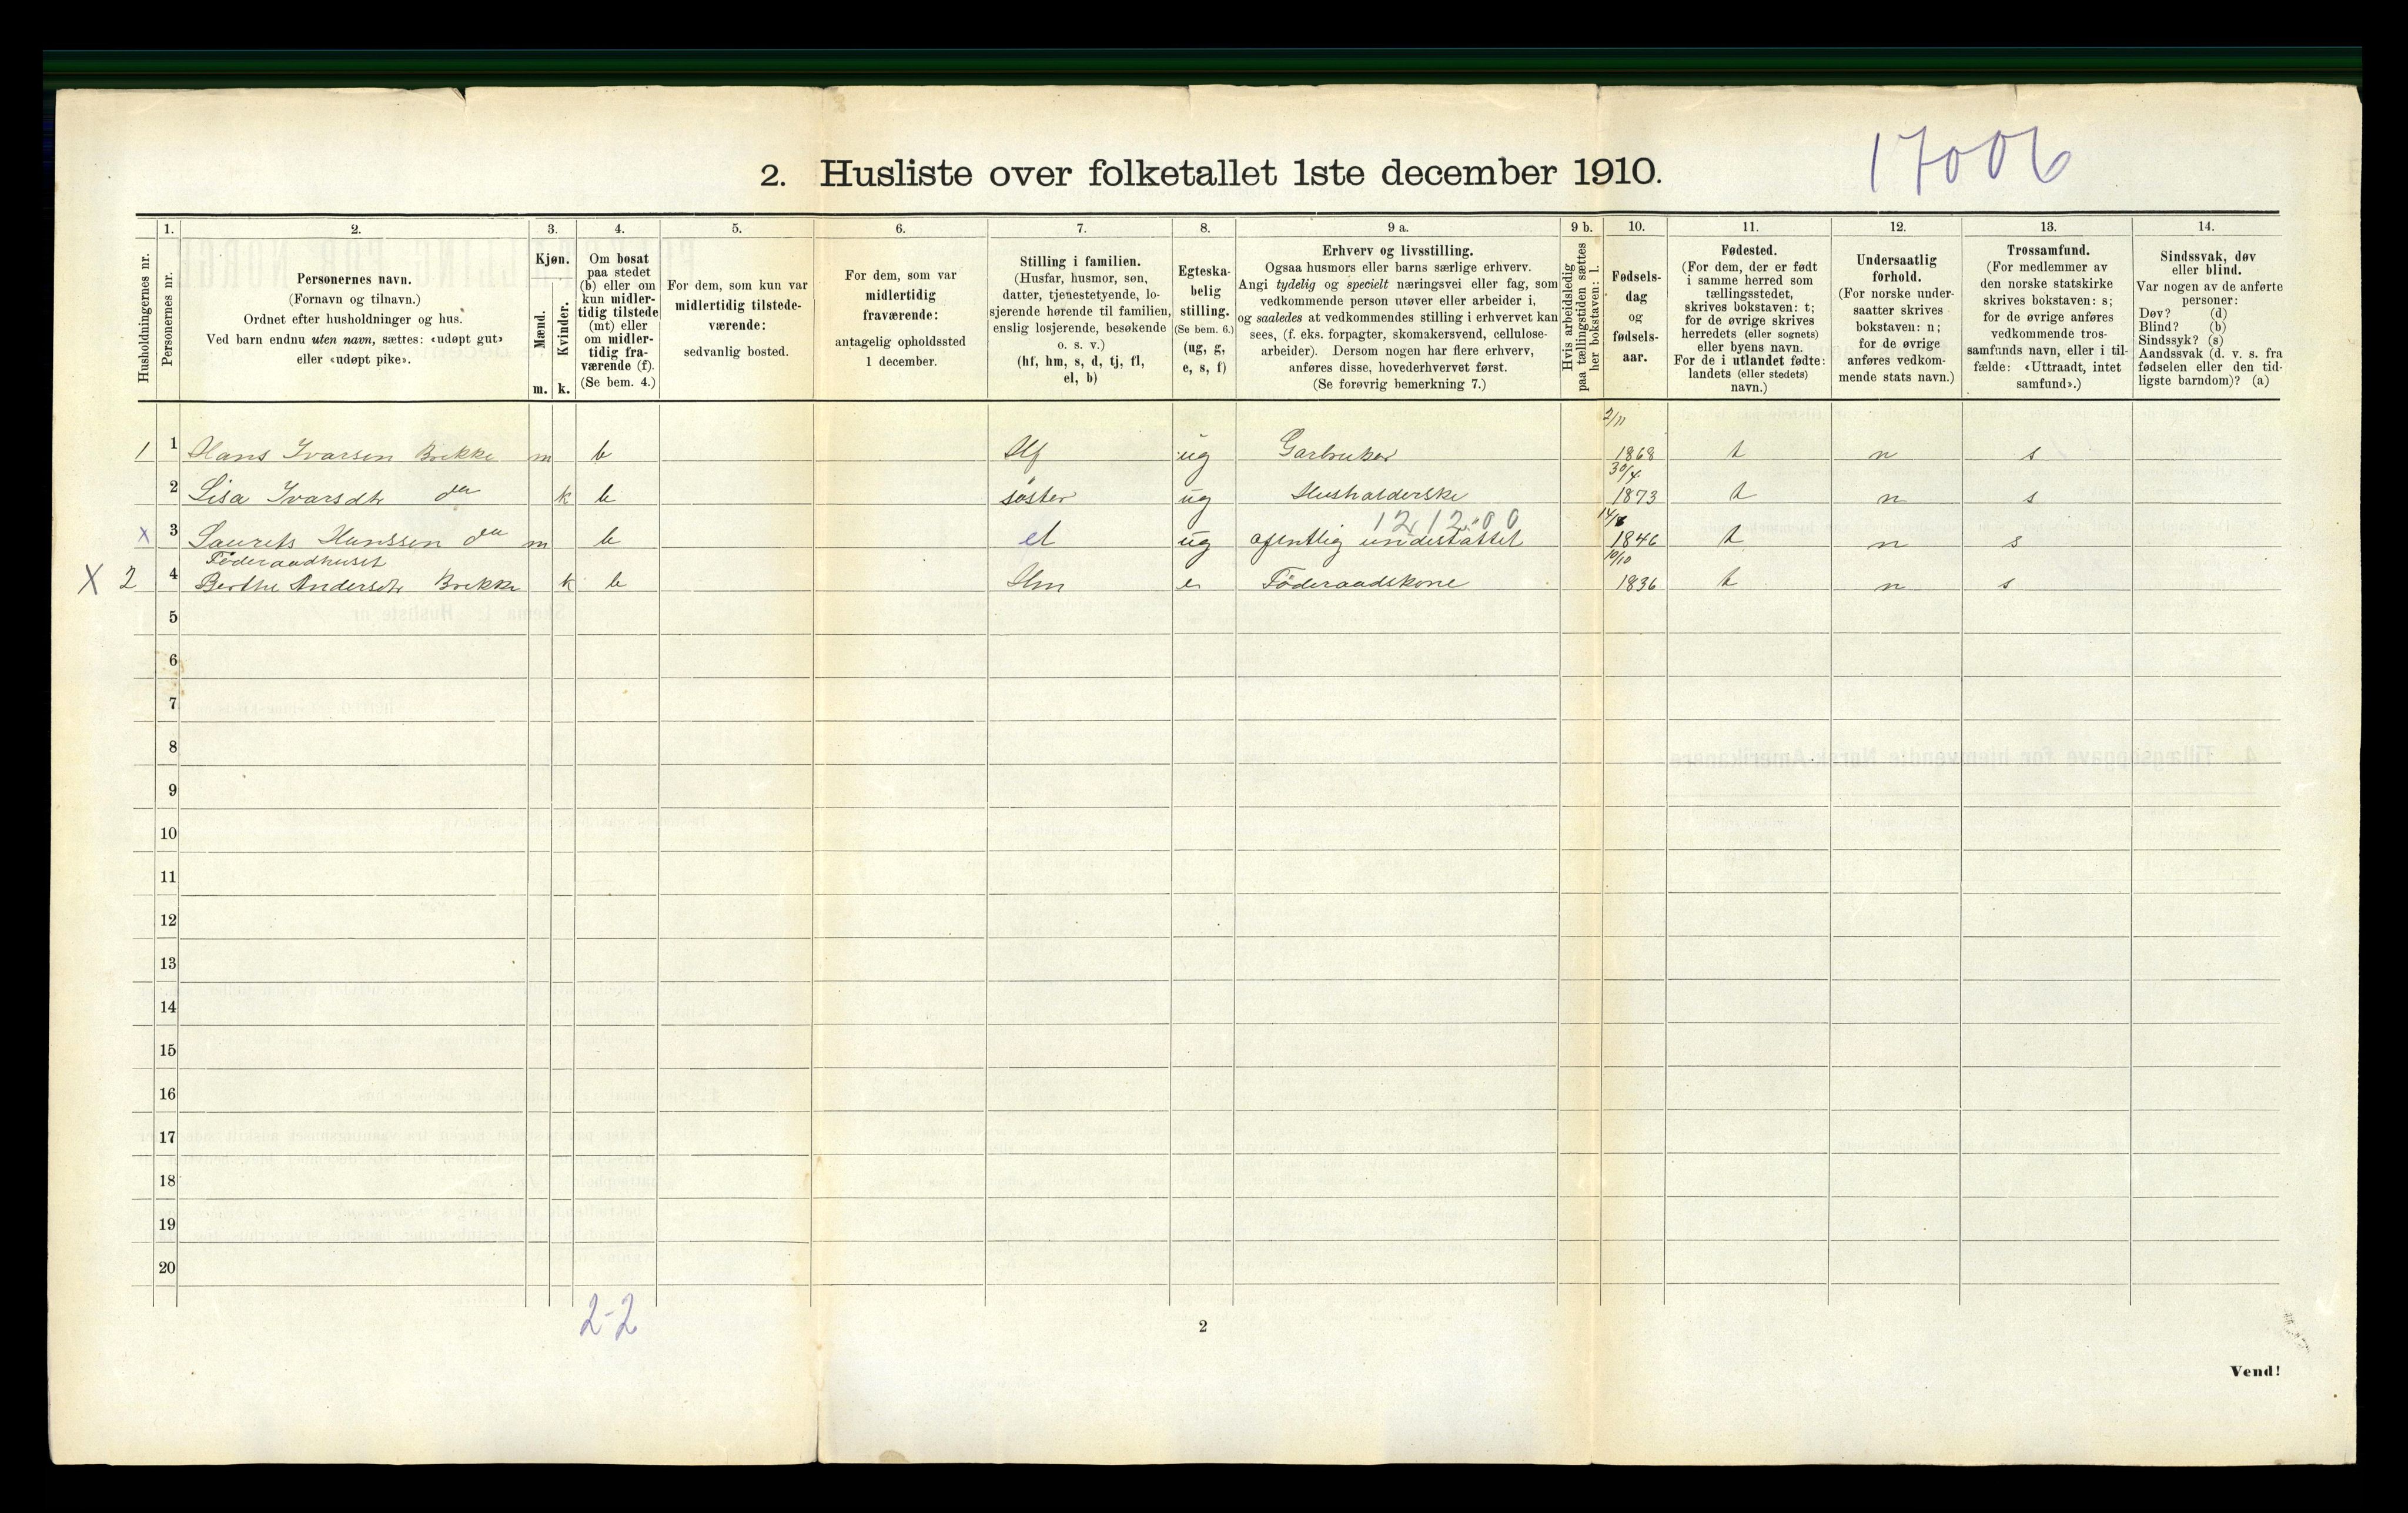 2. Husliste over folketallet 1ste december 1910.
17006
1. 2. 3. 4. 5. 6. 7. 8. 9 a. 9 b. 10. 11. 12. 13. 14.
Husholdningernes nr.
Personernes nr.
Personernes navn.
(Fornavn og tilnavn.)
Ordnet efter husholdninger og hus.
Ved barn endnu uten navn, sættes: «udøpt gut»
eller «udøpt pike».
Kjøn.
Mænd.
Kvinder.
m. k.
Om bosat
paa stedet
(b) eller om
kun midler-
tidig tilstede
(mt) eller
om midler-
tidig fra-
værende (f).
(Se bem. 4.)
For dem, som kun var
midlertidig tilstede-
værende:
sedvanlig bosted.
For dem, som var
midlertidig
fraværende:
antagelig opholdssted
1 december.
Stilling i familien.
(Husfar, husmor, søn,
datter, tjenestetyende, lo-
sjerende hørende til familien,
enslig losjerende, besøkende
o. s. v.)
(hf, hm, s, d, tj, fl,
el, b)
Egteska-
belig
stilling.
(Se bem. 6.)
(ug, g,
e, s, f)
Erhverv og livsstilling.
Ogsaa husmors eller barns særlige erhverv.
Angi tydelig og specielt næringsvei eller fag, som
vedkommende person utøver eller arbeider i,
og saaledes at vedkommendes stilling i erhvervet kan
sees, (f. eks. forpagter, skomakersvend, cellulose-
arbeider). Dersom nogen har flere erhverv,
anføres disse, hovederhvervet først.
(Se forøvrig bemerkning 7.)
Hvis arbeidsledig
paa tællingstiden sættes
her bokstaven: l.
Fødsels-
dag
og
fødsels-
aar.
Fødested.
(For dem, der er født
i samme herred som
tællingsstedet,
skrives bokstaven: t;
for de øvrige skrives
herredets (eller sognets)
eller byens navn.
For de i utlandet fødte:
landets (eller stedets)
navn.)
Undersaatlig
forhold.
(For norske under-
saatter skrives
bokstaven: n;
for de øvrige
anføres vedkom-
mende stats navn.)
Trossamfund.
(For medlemmer av
den norske statskirke
skrives bokstaven: s;
for de øvrige anføres
vedkommende tros-
samfunds navn, eller i til-
fælde: «Uttraadt, intet
samfund».)
Sindssvak, døv
eller blind.
Var nogen av de anførte
personer:
Døv? (d)
Blind? (b)
Sindssyk? (s)
Aandssvak (d. v. s. fra
fødselen eller den tid-
ligste barndom)? (a)
2/11
1 1 Hans Ivarsen Brekke m b Hf ug Garbruker 1868 t n s
30/4
2 Lisa Ivarsdtr do k b søster ug Husholderske 1873 t n s
12.12.00
x 3 Laurets Hanssen do m b el ug ofentlig understøttet 1846 t n s
Føderaadhuset
10/10
X 2 4 Berthe Andersdtr Brekke k b Hm e Føderaadskone 1836 t n s
5
6
7
8
9
10
11
12
13
14
15
16
17
18
19
20
2-2
2
Vend!